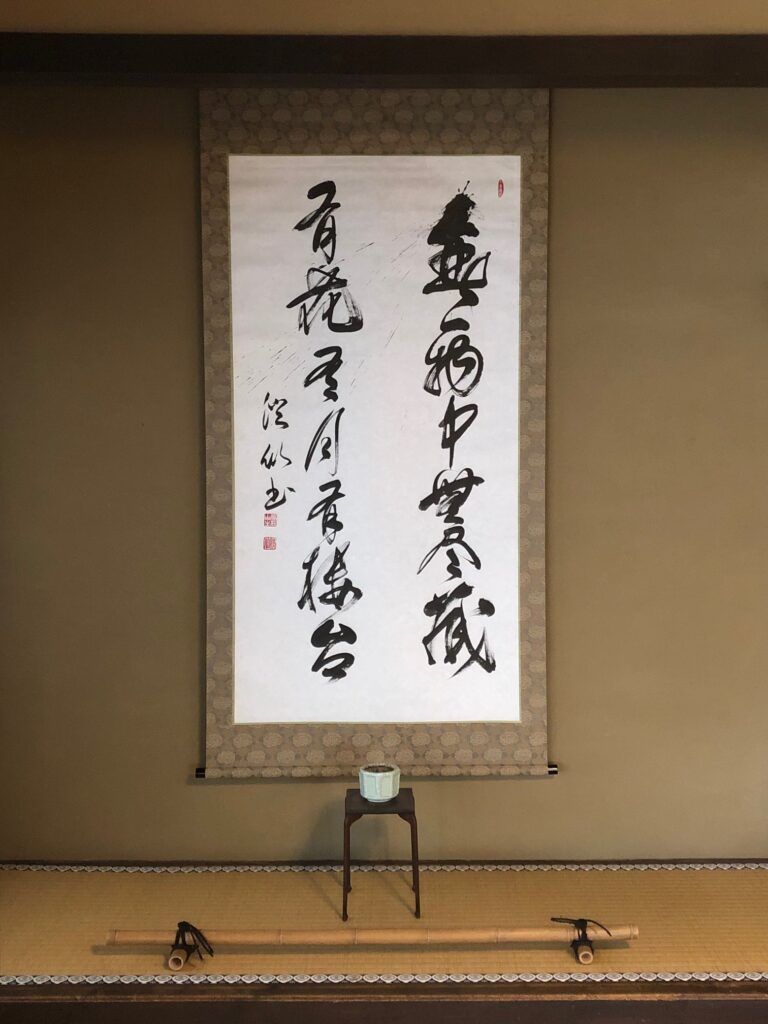 無一物中無尽蔵
有花有月有楼台